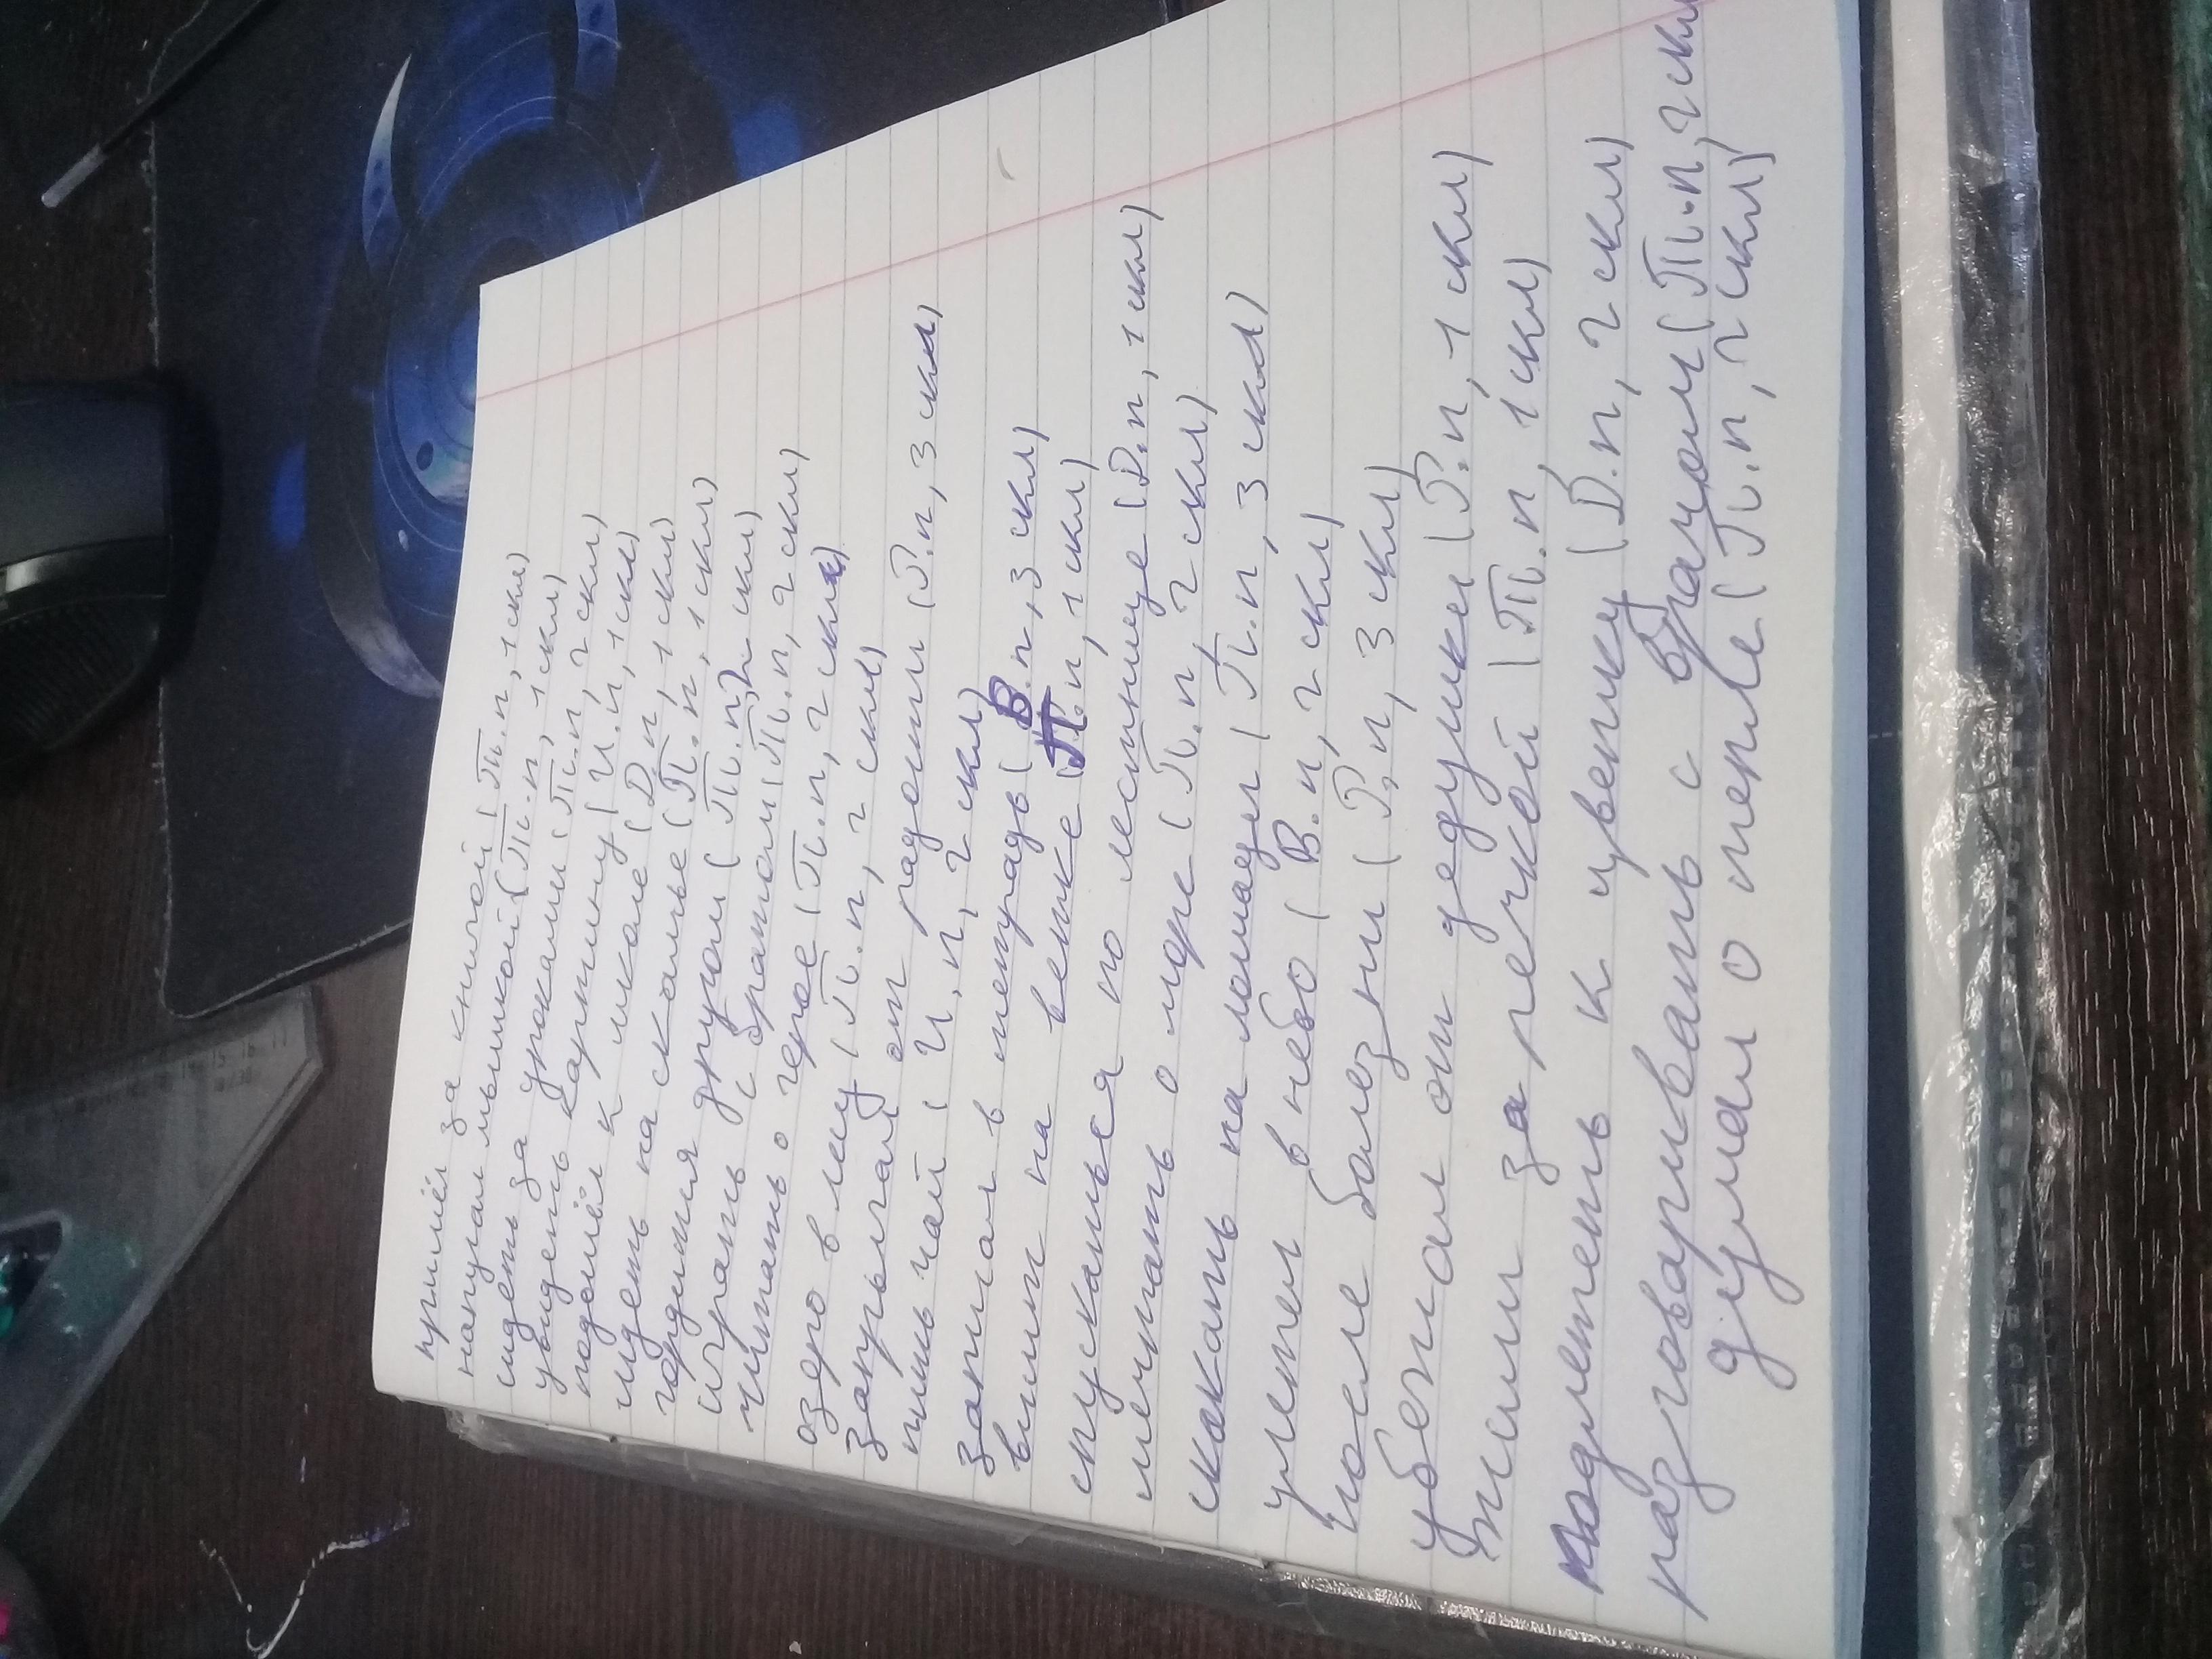 пришёл за книгой (Тв.п, 1 скл)
напугал мышкой (Тв.п, 1 скл)
сидеть за уроками (Тв.п, 2 скл)
увидеть картину (И.п, 1 скл)
подошёл к школе (Д.п, 1 скл)
сидеть на скамье (П.п, 1 скл)
гордится другом (Тв.п, 2 скл)
играть с братом (Тв.п, 2 скл)
читать о герое (П.п, 2 скл)
озеро в лесу (П.п, 2 скл)
запрыгал от радости (Р.п, 3 скл)
пить чай (И.п, 2 скл)
записал в тетрадь (В.п, 3 скл)
висит на ветке (П.п, 1 скл)
спускаться по лестнице (Д.п, 1 скл)
мечтать о море (П.п, 2 скл)
скакать на лошади (П.п, 3 скл)
улетел в небо (В.п, 2 скл)
после болезни (Р.п, 3 скл)
убежал от дедушки (Р.п, 1 скл)
жили за речкой (Тв.п, 1 скл)
подлететь к цветку (Д.п, 2 скл)
разговаривать с врачом (Тв.п, 2 скл
думал о тепле (П.п, 2 скл)